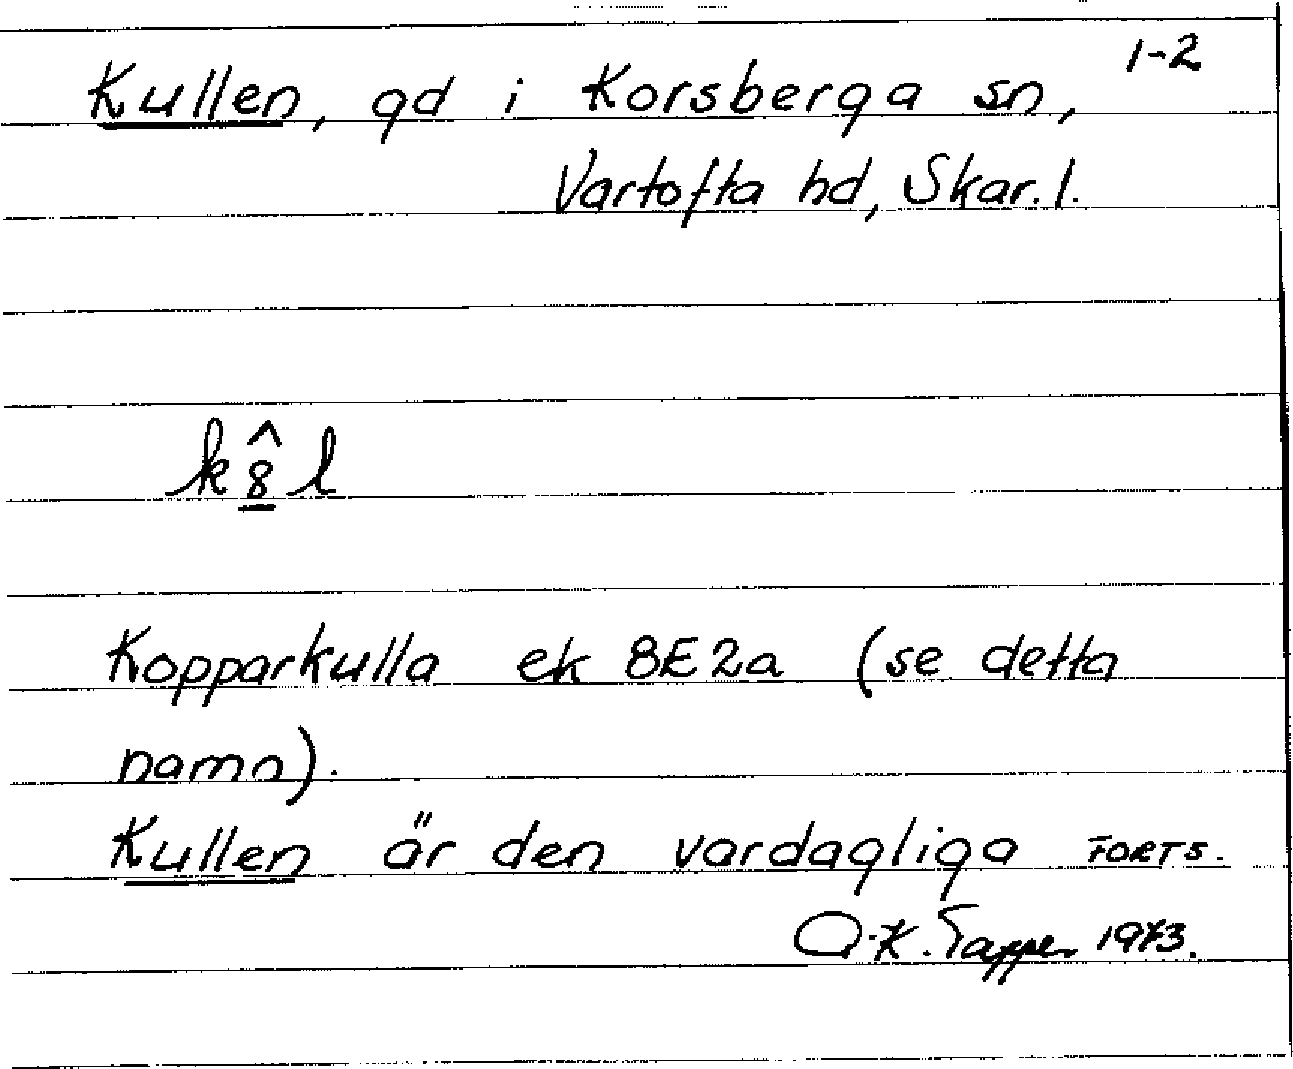 1-2
Kullen, gd i Korsberga sn,
Vartofta hd, Skar. l.
k 8̲̂ l
Kopparkulla ek 8E2a (se detta
namn).
Kullen är den vardagliga FORTS.
A-K. Tapper 1973.